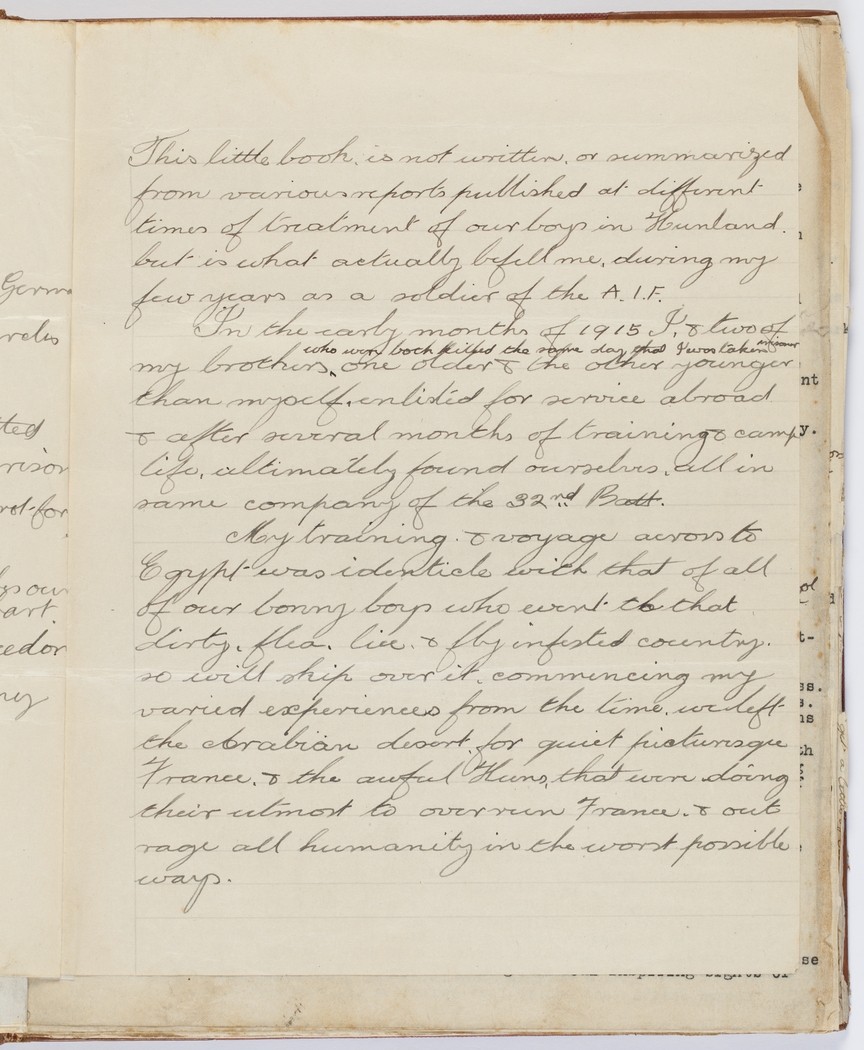 This little book, is not written, or summarized
from various reports published at different
times of treatment of our boys in Hunland.
but is what actually befell me, during my
few years as a soldier of the A.I.F.
In the early months of 1915 I, & two of
who were both killed the same day that I was taken prisoner
my brothers, one older & the other younger
than myself, enlisted for service abroad
& after several months of training & camp
life, ultimately found ourselves, all in
same company of the 32nd Batt.
My training & voyage across to
Egypt was identicle with that of all
of our bonny boys who went to that
dirty, flea, lice, & fly infested country.
so will skip over it, commencing my
varied experiences from the time, we left
the Arabian desert, for quiet picturesque
France, & the awful Huns, that were doing
their utmost to overrun France, & out
rage all humanity in the worst possible
ways.
Germ
ted
rison
our
art.
nt
y.
t-
ss.
s.
ns
th
se